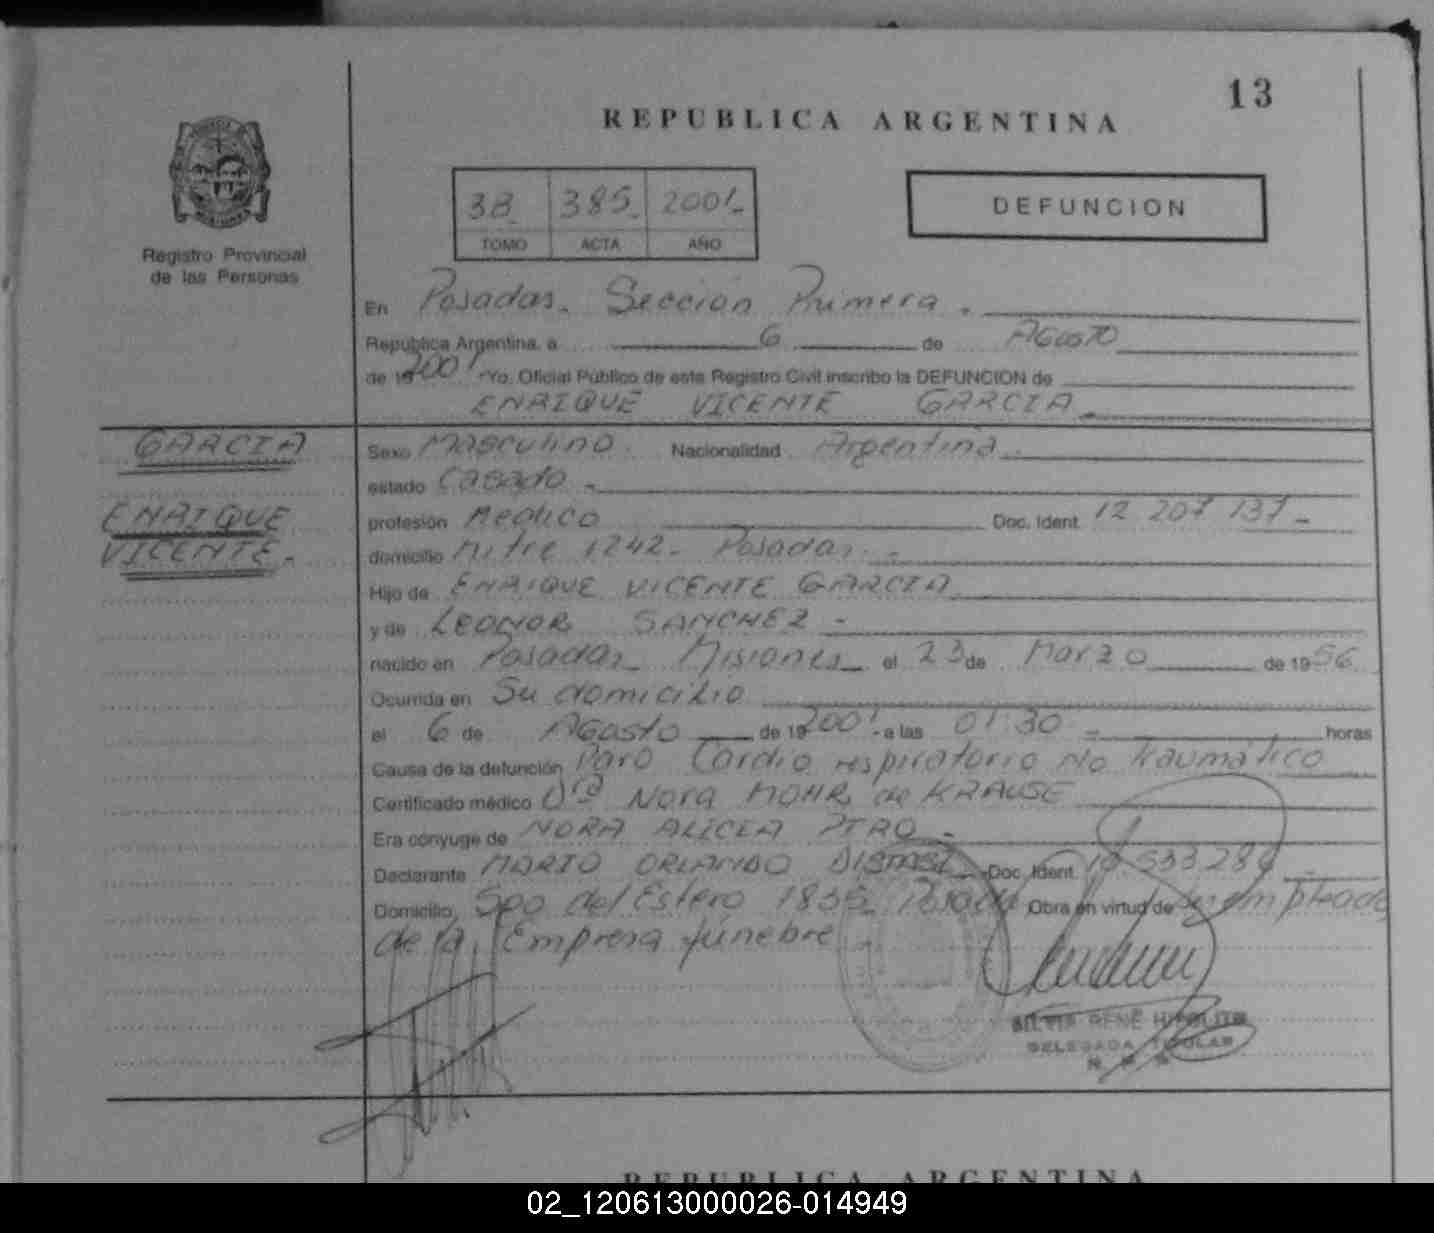 13
REPUBLICA ARGENTINA
38 385 2001
TOMO ACTA AÑO
DEFUNCION
Registro Provincial
de las Personas
En Posadas. Sección Primera.
República Argentina, a 6 de Agosto
de 19 2001 Yo, Oficial Público de este Registro Civil inscribo la DEFUNCION de
ENRIQUE VICENTE GARCIA
GARCIA
ENRIQUE
VICENTE.
Sexo Masculino. Nacionalidad Argentina
estado Casado
profesión Medico Doc. Ident. 12 207 137
domicilio Mitre 1242 - Posadas.
Hijo de ENRIQUE VICENTE GARCIA
y de LEONOR SANCHEZ
nacido en Posadas Misiones el 23 de Marzo de 1956
Ocurrida en Su domicilio
el 6 de Agosto de 19 2001 - a las 01:30 horas
Causa de la defunción Paro Cardio respiratorio No traumático
Certificado médico Dra Nora MOHR de KRAUSE
Era cónyuge de NORA ALICIA
Declarante MARIO ORLANDO Doc. Ident. 10 533 284
Domicilio, Sgo del Estero 1835 Posadas Obra en virtud de empleado
de la Empresa fúnebre.
SILVIA RENE HIPOLITO
DELEGADA TITULAR
REPUBLICA ARGENTINA
02_120613000026-014949